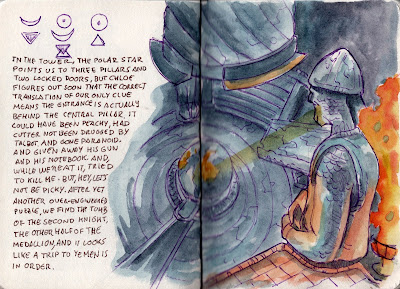 IN THE TOWER, THE POLAR STAR
POINTS US TO THREE PILLARS AND
TWO LOCKED DOORS, BUT CHLOE
FIGURES OUT SOON THAT THE CORRECT
TRANSLATION OF OUR ONLY CLUE
MEANS THE ENTRANCE IS ACTUALLY
BEHIND THE CENTRAL PILLAR. IT
COULD HAVE BEEN PEACHY, HAD
CUTTER NOT BEEN DRUGGED BY
TALBOT AND GONE PARANOID.
AND GIVEN AWAY HIS GUN
AND HIS NOTEBOOK AND,
WHILE WE'RE AT IT, TRIED
TO KILL ME - BUT, HEY, LET'S
NOT BE PICKY. AFTER YET
ANOTHER OVER-ENGINEERED
PUZZLE, WE FIND THE TOMB
OF THE SECOND KNIGHT,
THE OTHER HALF OF THE
MEDALLION, AND IT LOOKS
LIKE A TRIP TO YEMEN IS
IN ORDER.